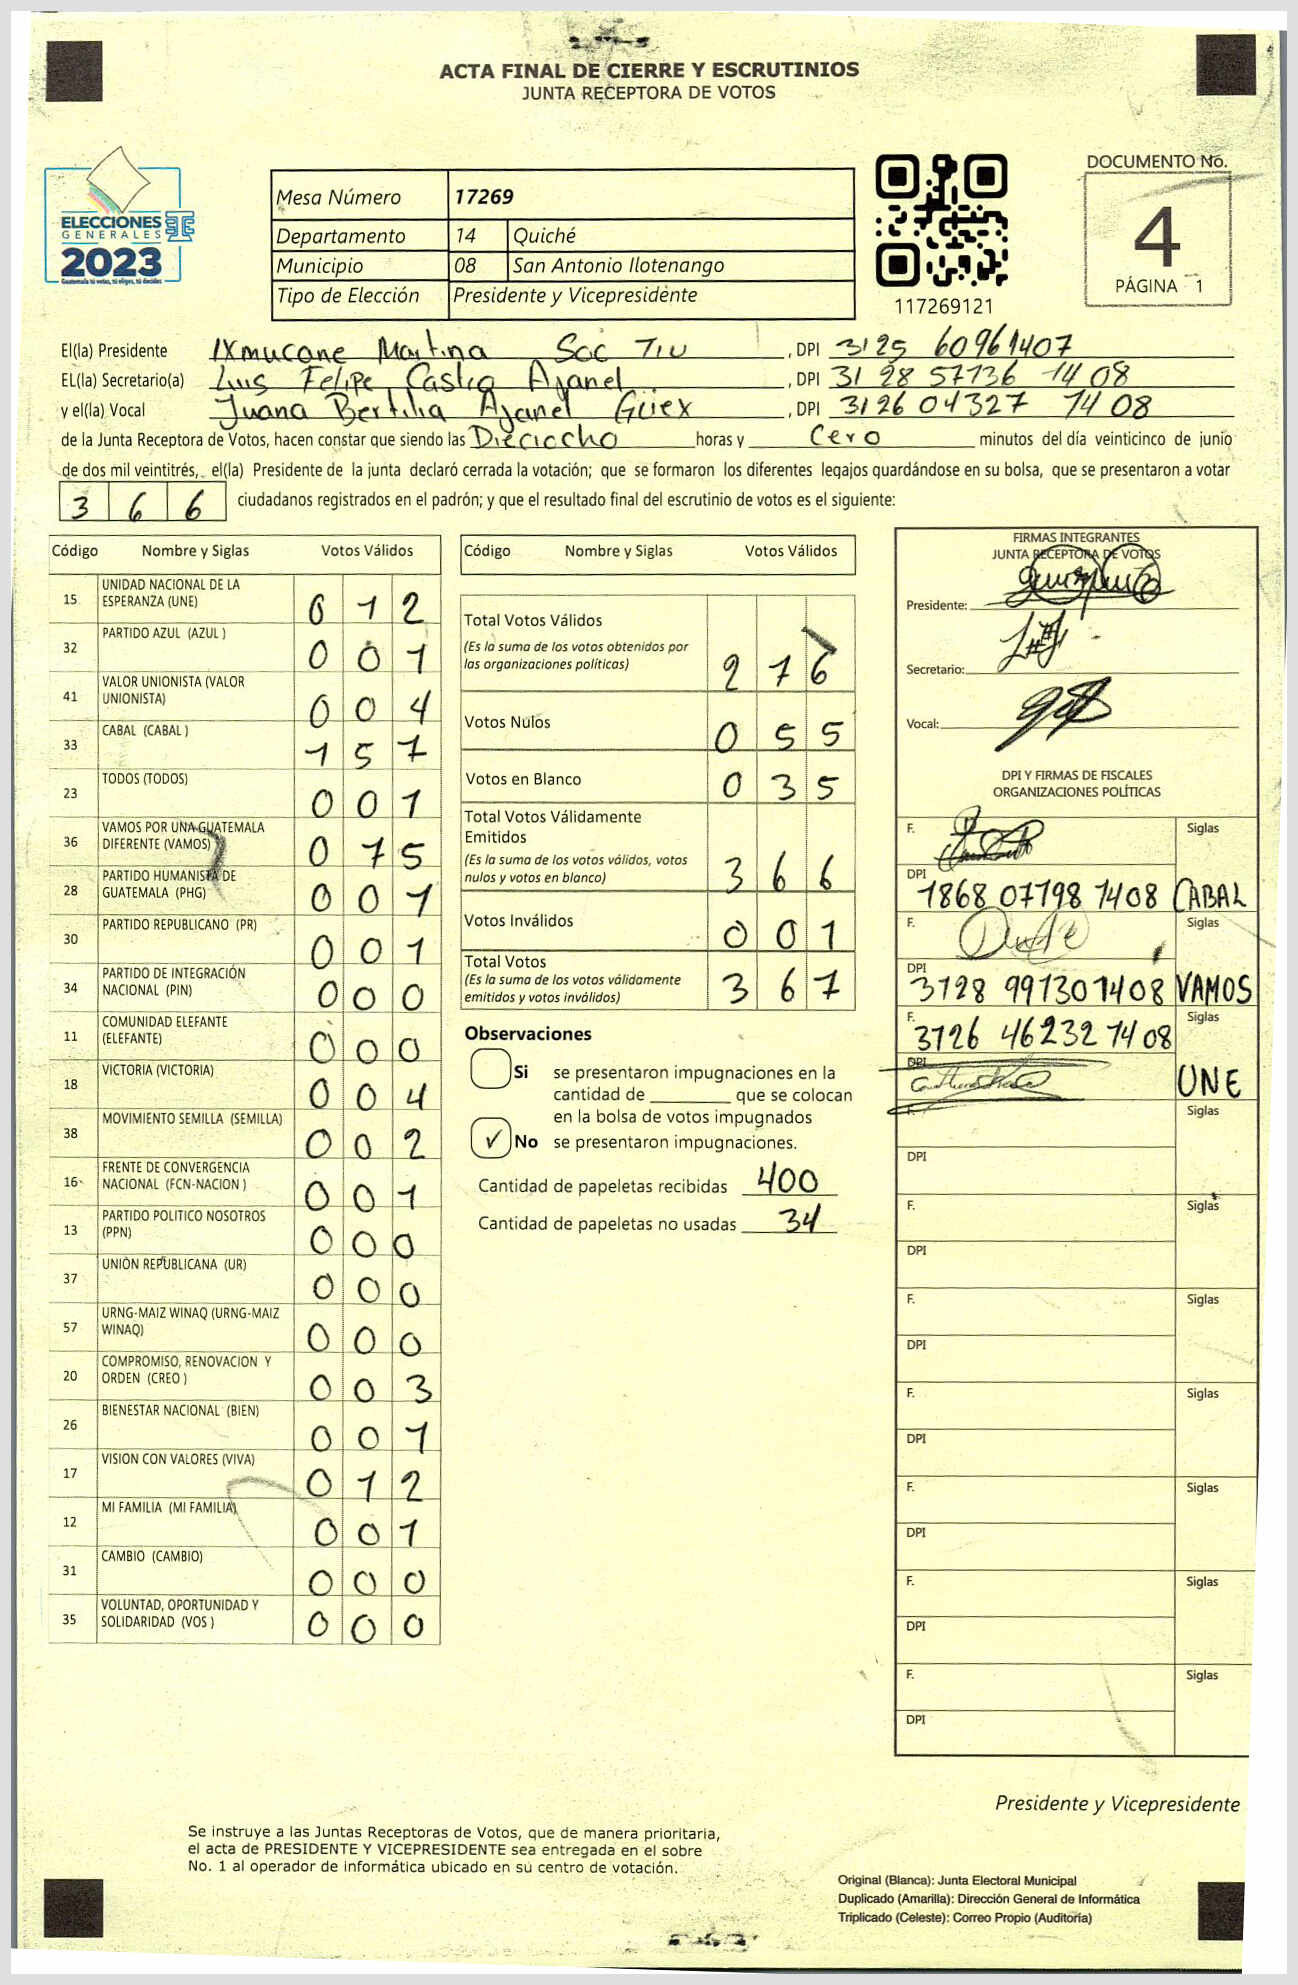 ACTA FINAL DE CIERRE Y ESCRUTINIOS
JUNTA RECEPTORA DE VOTOS
ELECCIONES
GENERALES
2023
Guatemala tú votas, tú eliges, tú decides
Mesa Número 17269
Departamento 14 Quiché
Municipio 08 San Antonio Ilotenango
Tipo de Elección Presidente y Vicepresidente
117269121
DOCUMENTO No.
4
PÁGINA 1
El(la) Presidente Ixmucane Martina Soc Tiu , DPI 3125 60961407
EL(la) Secretario(a) Luis Felipe Castro Ajanel , DPI 3128 57736 1408
y el(la) Vocal Juana Bertilia Ajanel Güex , DPI 3126 04327 1408
de la Junta Receptora de Votos, hacen constar que siendo las Dieciocho horas y Cero minutos del día veinticinco de junio
de dos mil veintitrés, el(la) Presidente de la junta declaró cerrada la votación; que se formaron los diferentes legajos quardándose en su bolsa, que se presentaron a votar
3 6 6 ciudadanos registrados en el padrón; y que el resultado final del escrutinio de votos es el siguiente:
Código Nombre y Siglas Votos Válidos
15 UNIDAD NACIONAL DE LA ESPERANZA (UNE) 0 1 2
32 PARTIDO AZUL (AZUL ) 0 0 1
41 VALOR UNIONISTA (VALOR UNIONISTA) 0 0 4
33 CABAL (CABAL ) 1 5 7
23 TODOS (TODOS) 0 0 1
36 VAMOS POR UNA GUATEMALA DIFERENTE (VAMOS) 0 7 5
28 PARTIDO HUMANISTA DE GUATEMALA (PHG) 0 0 1
30 PARTIDO REPUBLICANO (PR) 0 0 1
34 PARTIDO DE INTEGRACIÓN NACIONAL (PIN) 0 0 0
11 COMUNIDAD ELEFANTE (ELEFANTE) 0 0 0
18 VICTORIA (VICTORIA) 0 0 4
38 MOVIMIENTO SEMILLA (SEMILLA) 0 0 2
16 FRENTE DE CONVERGENCIA NACIONAL (FCN-NACION ) 0 0 1
13 PARTIDO POLITICO NOSOTROS (PPN) 0 0 0
37 UNIÓN REPUBLICANA (UR) 0 0 0
57 URNG-MAIZ WINAQ (URNG-MAIZ WINAQ) 0 0 0
20 COMPROMISO, RENOVACION Y ORDEN (CREO ) 0 0 3
26 BIENESTAR NACIONAL (BIEN) 0 0 1
17 VISION CON VALORES (VIVA) 0 1 2
12 MI FAMILIA (MI FAMILIA) 0 0 1
31 CAMBIO (CAMBIO) 0 0 0
35 VOLUNTAD, OPORTUNIDAD Y SOLIDARIDAD (VOS ) 0 0 0
Código Nombre y Siglas Votos Válidos
Total Votos Válidos
(Es la suma de los votos obtenidos por
las organizaciones políticas) 2 7 6
Votos Nulos 0 5 5
Votos en Blanco 0 3 5
Total Votos Válidamente
Emitidos
(Es la suma de los votos válidos, votos
nulos y votos en blanco) 3 6 6
Votos Inválidos 0 0 1
Total Votos
(Es la suma de los votos válidamente
emitidos y votos inválidos) 3 6 7
Observaciones
Si se presentaron impugnaciones en la
cantidad de ________ que se colocan
en la bolsa de votos impugnados
✓ No se presentaron impugnaciones.
Cantidad de papeletas recibidas 400
Cantidad de papeletas no usadas 34
FIRMAS INTEGRANTES
JUNTA RECEPTORA DE VOTOS
Presidente:
Secretario:
Vocal:
DPI Y FIRMAS DE FISCALES
ORGANIZACIONES POLÍTICAS
F. Siglas
DPI 1868 07798 1408 CABAL
F. Siglas
DPI 3128 99730 1408 VAMOS
F. 3126 46232 1408 Siglas
DPI UNE
F. Siglas
DPI
F. Siglas
DPI
F. Siglas
DPI
F. Siglas
DPI
F. Siglas
DPI
F. Siglas
DPI
F. Siglas
DPI
Presidente y Vicepresidente
Se instruye a las Juntas Receptoras de Votos, que de manera prioritaria,
el acta de PRESIDENTE Y VICEPRESIDENTE sea entregada en el sobre
No. 1 al operador de informática ubicado en su centro de votación.
Original (Blanca): Junta Electoral Municipal
Duplicado (Amarilla): Dirección General de Informática
Triplicado (Celeste): Correo Propio (Auditoría)